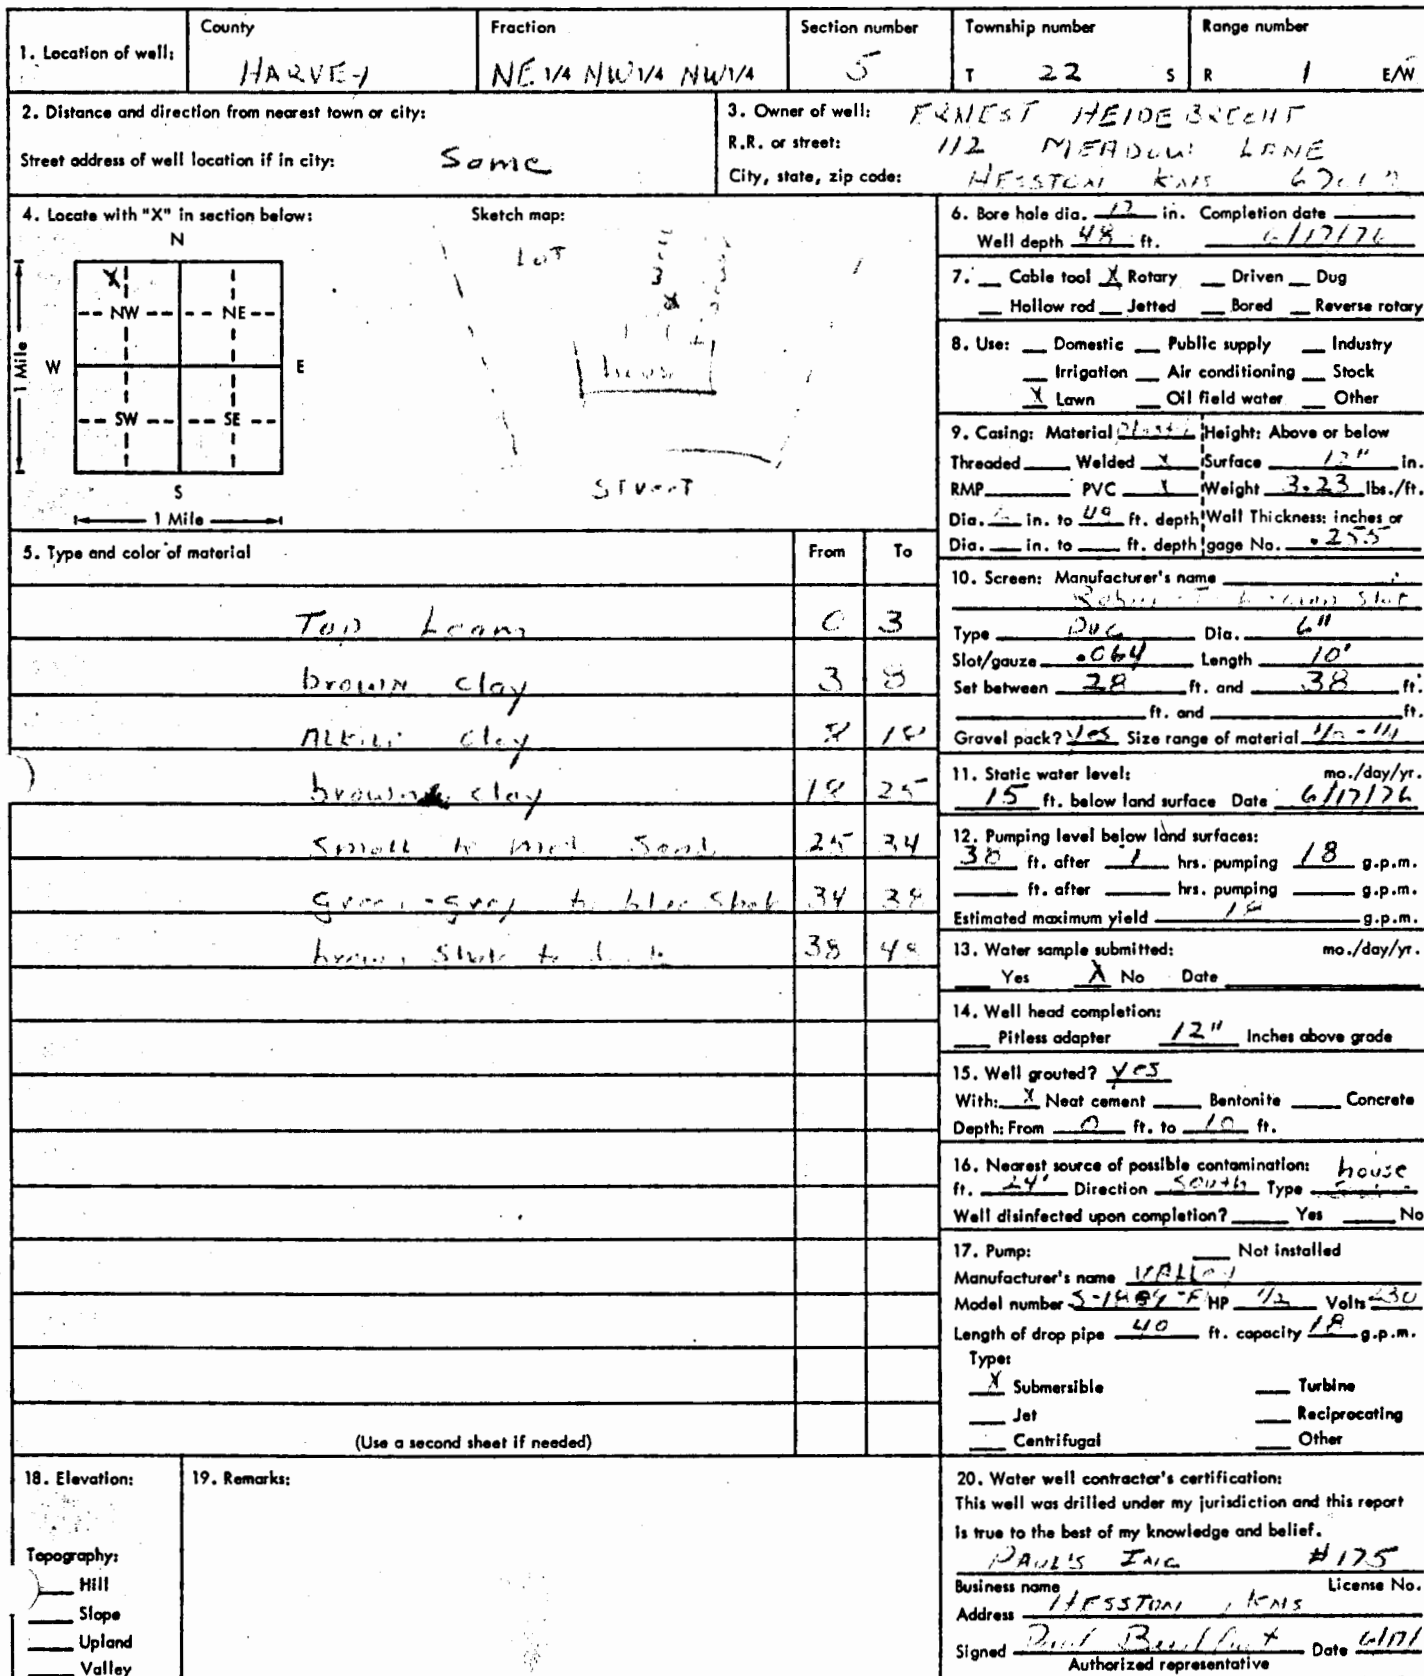 County Fraction Section number Township number Range number
1. Location of well: HARVEY NE 1/4 NW 1/4 NW 1/4 5 T 22 S R 1 E/W
2. Distance and direction from nearest town or city:
Street address of well location if in city: Same
3. Owner of well: ERNEST HEIDEBRECHT
R.R. or street: 112 MEADOW LANE
City, state, zip code: HESSTON KNS
4. Locate with "X" in section below:
N
X
NW NE
W E
1 Mile
SW SE
S
1 Mile
Sketch map:
LOT
house
Street
5. Type and color of material From To
Top Loam 0 3
brown clay 3 8
Alkili clay 8 18
brown clay 18 25
Small to med Sand 25 34
green-grey to blue Shale 34 38
brown Shale to 38 48
(Use a second sheet if needed)
6. Bore hole dia. 12 in. Completion date
Well depth 48 ft. 6/17/76
7. Cable tool X Rotary Driven Dug
Hollow rod Jetted Bored Reverse rotary
8. Use: Domestic Public supply Industry
Irrigation Air conditioning Stock
X Lawn Oil field water Other
9. Casing: Material Plastic Height: Above or below
Threaded Welded X Surface 12" in.
RMP PVC X Weight 3.23 lbs./ft.
Dia. in. to ft. depth Wall Thickness: inches or
Dia. in. to ft. depth gage No. .255
10. Screen: Manufacturer's name
Slot
Type PVC Dia. 6"
Slot/gauze .064 Length 10'
Set between 28 ft. and 38 ft.
ft. and ft.
Gravel pack? Yes Size range of material
11. Static water level: mo./day/yr.
15 ft. below land surface Date 6/17/76
12. Pumping level below land surfaces:
38 ft. after 1 hrs. pumping 18 g.p.m.
ft. after hrs. pumping g.p.m.
Estimated maximum yield 18 g.p.m.
13. Water sample submitted: mo./day/yr.
Yes X No Date
14. Well head completion:
Pitless adapter 12" Inches above grade
15. Well grouted? yes
With: X Neat cement Bentonite Concrete
Depth: From 0 ft. to 10 ft.
16. Nearest source of possible contamination: house
ft. 24' Direction South Type
Well disinfected upon completion? Yes No
17. Pump: Not installed
Manufacturer's name VALLEY
Model number HP 1/2 Volts 230
Length of drop pipe 40 ft. capacity 18 g.p.m.
Type:
X Submersible Turbine
Jet Reciprocating
Centrifugal Other
18. Elevation:
Topography:
Hill
Slope
Upland
Valley
19. Remarks:
20. Water well contractor's certification:
This well was drilled under my jurisdiction and this report
is true to the best of my knowledge and belief.
PAUL'S INC #175
Business name License No.
Address HESSTON, KNS
Signed Date
Authorized representative